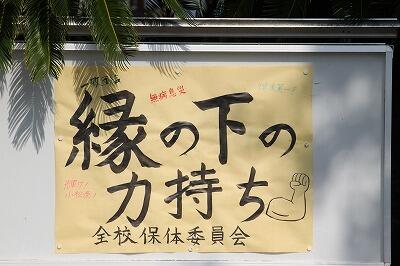 無病息災
縁の下の
力持ち
全校保体委員会